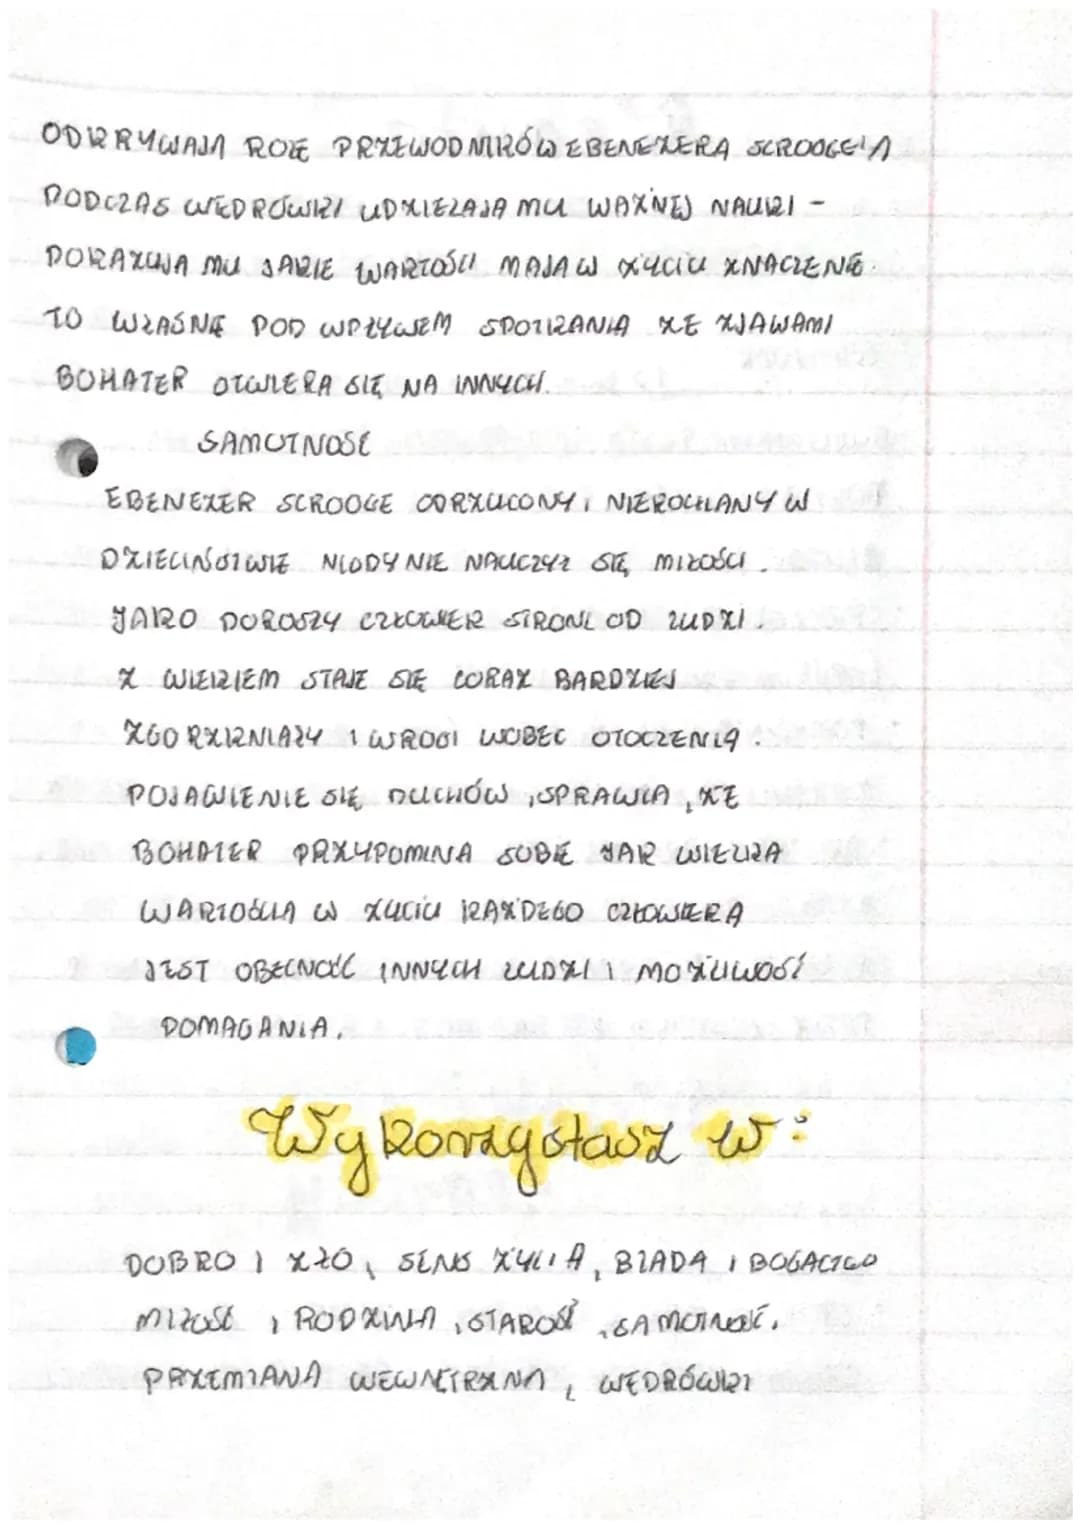 ODKRYWAJA ROLE PRZEWODNIKÓW EBENEZERA SCROOGE'A
PODCZAS WEDRÓWKI UDZIELAJA MU WAŻNEJ NAUKI -
POKAZUJA MU JAKIE WARTOŚCI MAJA W ŻYCIU ZNACZENIE.
TO WŁAŚNIE POD WPŁYWEM SPOTKANIA ZE ZJAWAMI
BOHATER OTWIERA SIĘ NA INNYCH.
SAMOTNOŚĆ
EBENEZER SCROOGE ODRZUCONY I NIEKOCHANY W
DZIECIŃSTWIE NIGDY NIE NAUCZYŁ SIĘ MIŁOŚCI.
JAKO DOROSZY CZŁOWIEK STRONI OD LUDZI.
Z WIEKIEM STAJE SIĘ CORAZ BARDZIEJ
ZGORZKNIAŁY I WROGI WOBEC OTOCZENIA.
POJAWIENIE SIĘ DUCHÓW, SPRAWIA, ŻE
BOHATER PRZYPOMINA SOBIE JAK WIELKA
WARTOŚCIA W ŻYCIU KAŻDEGO CZŁOWIEKA
JEST OBECNOŚĆ INNYCH LUDZI I MOŻLIWOŚĆ
POMAGANIA.
Wykorzystasz w:
DOBRO I ZŁO, SENS ŻYCIA, BIADA I BOGACTGO
MIŁOŚĆ, RODZINA, STAROŚĆ, SAMOTNOŚĆ,
PRZEMIANA WEWNETRZNA, WEDRÓWKI